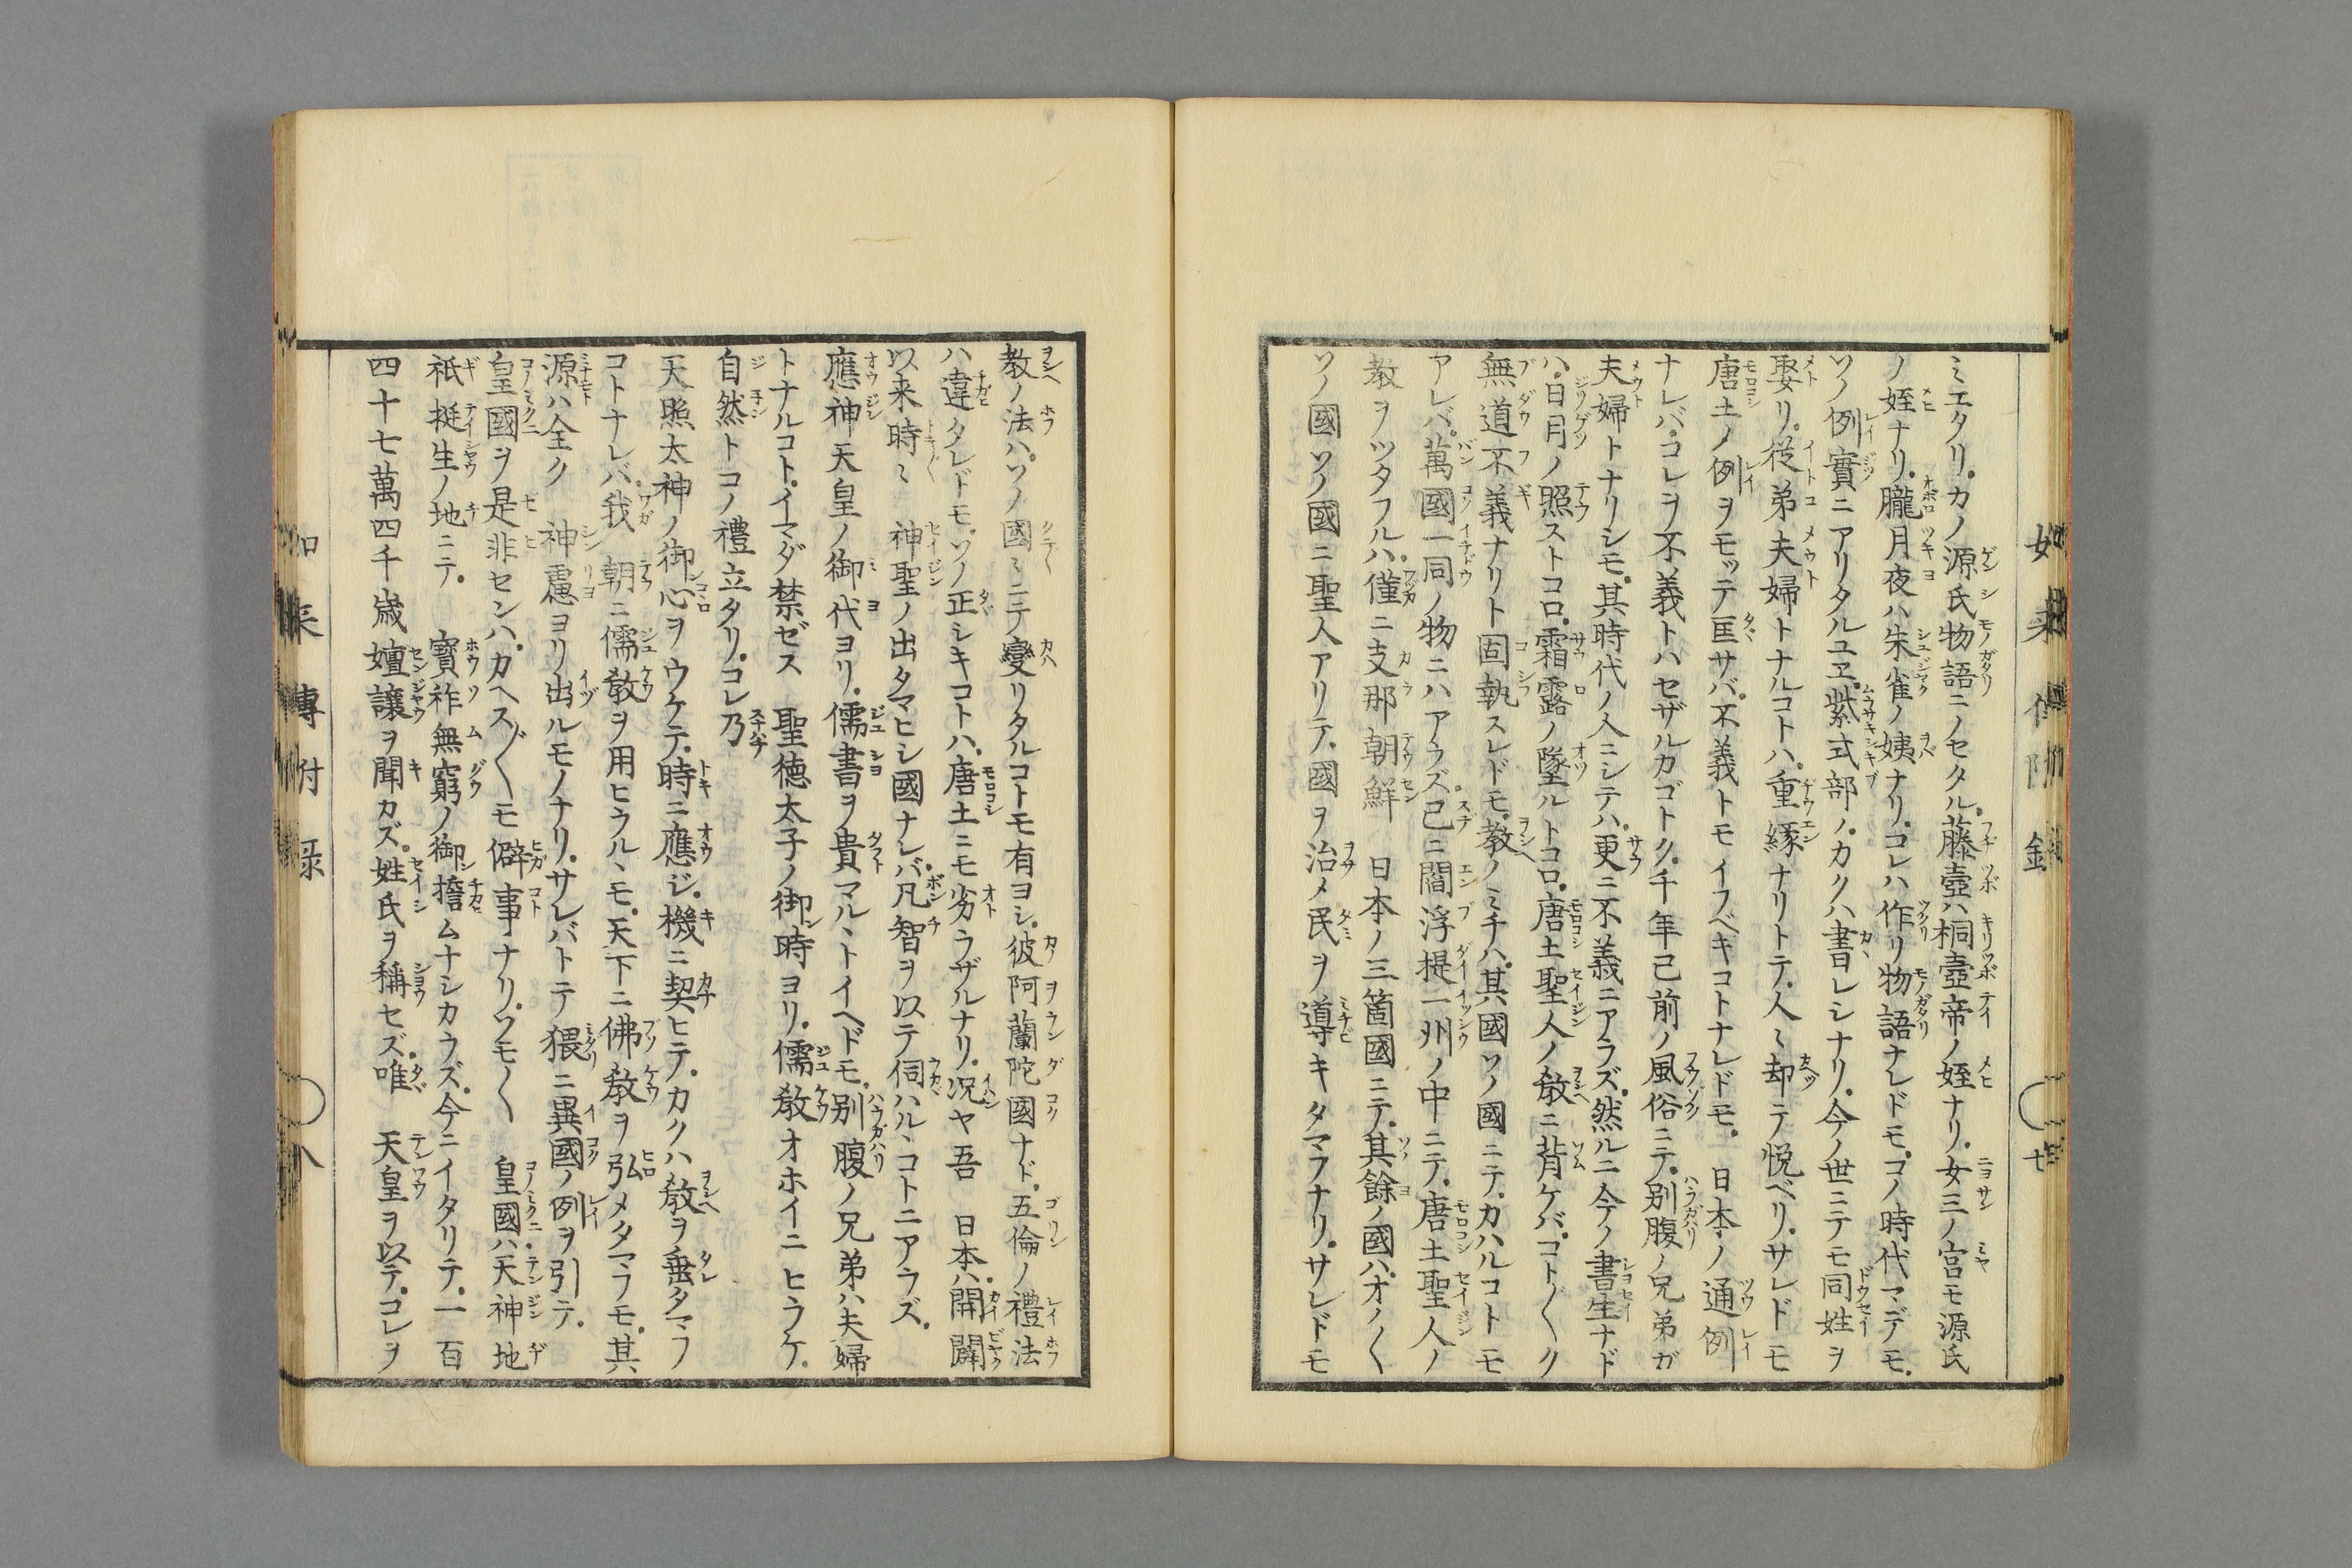 ミエタリ。カノ源氏物語ニノセタル。藤壺ハ桐壺帝ノ姪ナリ。女三ノ宮モ源氏
ノ姪ナリ。朧月夜ハ朱雀ノ姨ナリ。コレハ作リ物語ナレドモ。コノ時代マデモ。
ソノ例實ニアリタルユヱ。紫式部ノ。カクハ書レシナリ。今ノ世ニテモ同姓ヲ
娶リ。従弟夫婦トナルコトハ。重縁ナリトテ。人〻却テ悦ベリ。サレドモ
唐土ノ例ヲモッテ匡サバ。不義トモイフベキコトナレドモ。　日本ノ通例
ナレバ。コレヲ不義トハセザルカゴトク。千年已前ノ風俗ニテ。別腹ノ兄弟ガ
夫婦トナリシモ。其時代ノ人ニシテハ。更ニ不義ニアラズ。然ルニ今ノ書生ナド
ハ。日月ノ照ストコロ。霜露ノ墜ルトコロ。唐土聖人ノ敎ニ背ケバ。コト〴〵ク
無道不義ナリト固執スレドモ。教ノミチハ。其國ソノ國ニテ。カハルコトモ
アレバ。萬國一同ノ物ニハアラズ。已ニ閻浮提一州ノ中ニテ。唐土聖人ノ
教ヲツタフルハ。僅ニ支那朝鮮　日本ノ三箇國ニテ。其餘ノ國ハ。オノ〱
ソノ國ソノ國ニ聖人アリテ。國ヲ治メ民ヲ導キタマフナリ。サレドモ
如来傳附録　七
教ノ法ハ。ソノ國〻ニテ變リタルコトモ有ヨシ。彼阿蘭陀國ナド。五倫ノ禮法
ハ違タレドモ。ソノ正シキコトハ。唐土ニモ劣ラザルナリ。况ヤ吾　日本ハ。開闢
以来時〻　神聖ノ出タマヒシ國ナレバ。凡智ヲ以テ伺ハルヽコトニアラズ。
應神天皇ノ御代ヨリ。儒書ヲ貴マルヽトイヘドモ。別腹ノ兄弟ハ夫婦
トナルコト。イマダ禁ゼス　聖徳太子ノ御時ヨリ。儒敎オホイニヒラケ。
自然トコノ禮立タリ。コレ乃
天照太神ノ御心ヲウケテ。時ニ應ジ。機ニ契ヒテ。カクハ敎ヲ垂タマフ
コトナレバ。我　朝ニ儒敎ヲ用ヒラルヽモ。天下ニ佛敎ヲ弘メタマフモ。其
源ハ全ク　神慮ヨリ出ルモノナリ。サレバトテ猥ニ異國ノ例ヲ引テ。
皇國ヲ是非センハ。カヘス〴〵モ僻事ナリ。ソモ〱　皇國ハ。天神地
祇挺生ノ地ニテ。　寳祚無窮ノ御擔ムナシカラズ。今ニイタリテ。一百
四十七萬四千歳嬗讓ヲ聞カズ。姓氏ヲ稱セズ。唯　天皇ヲ以テ。コレヲ
如来傳附録　八